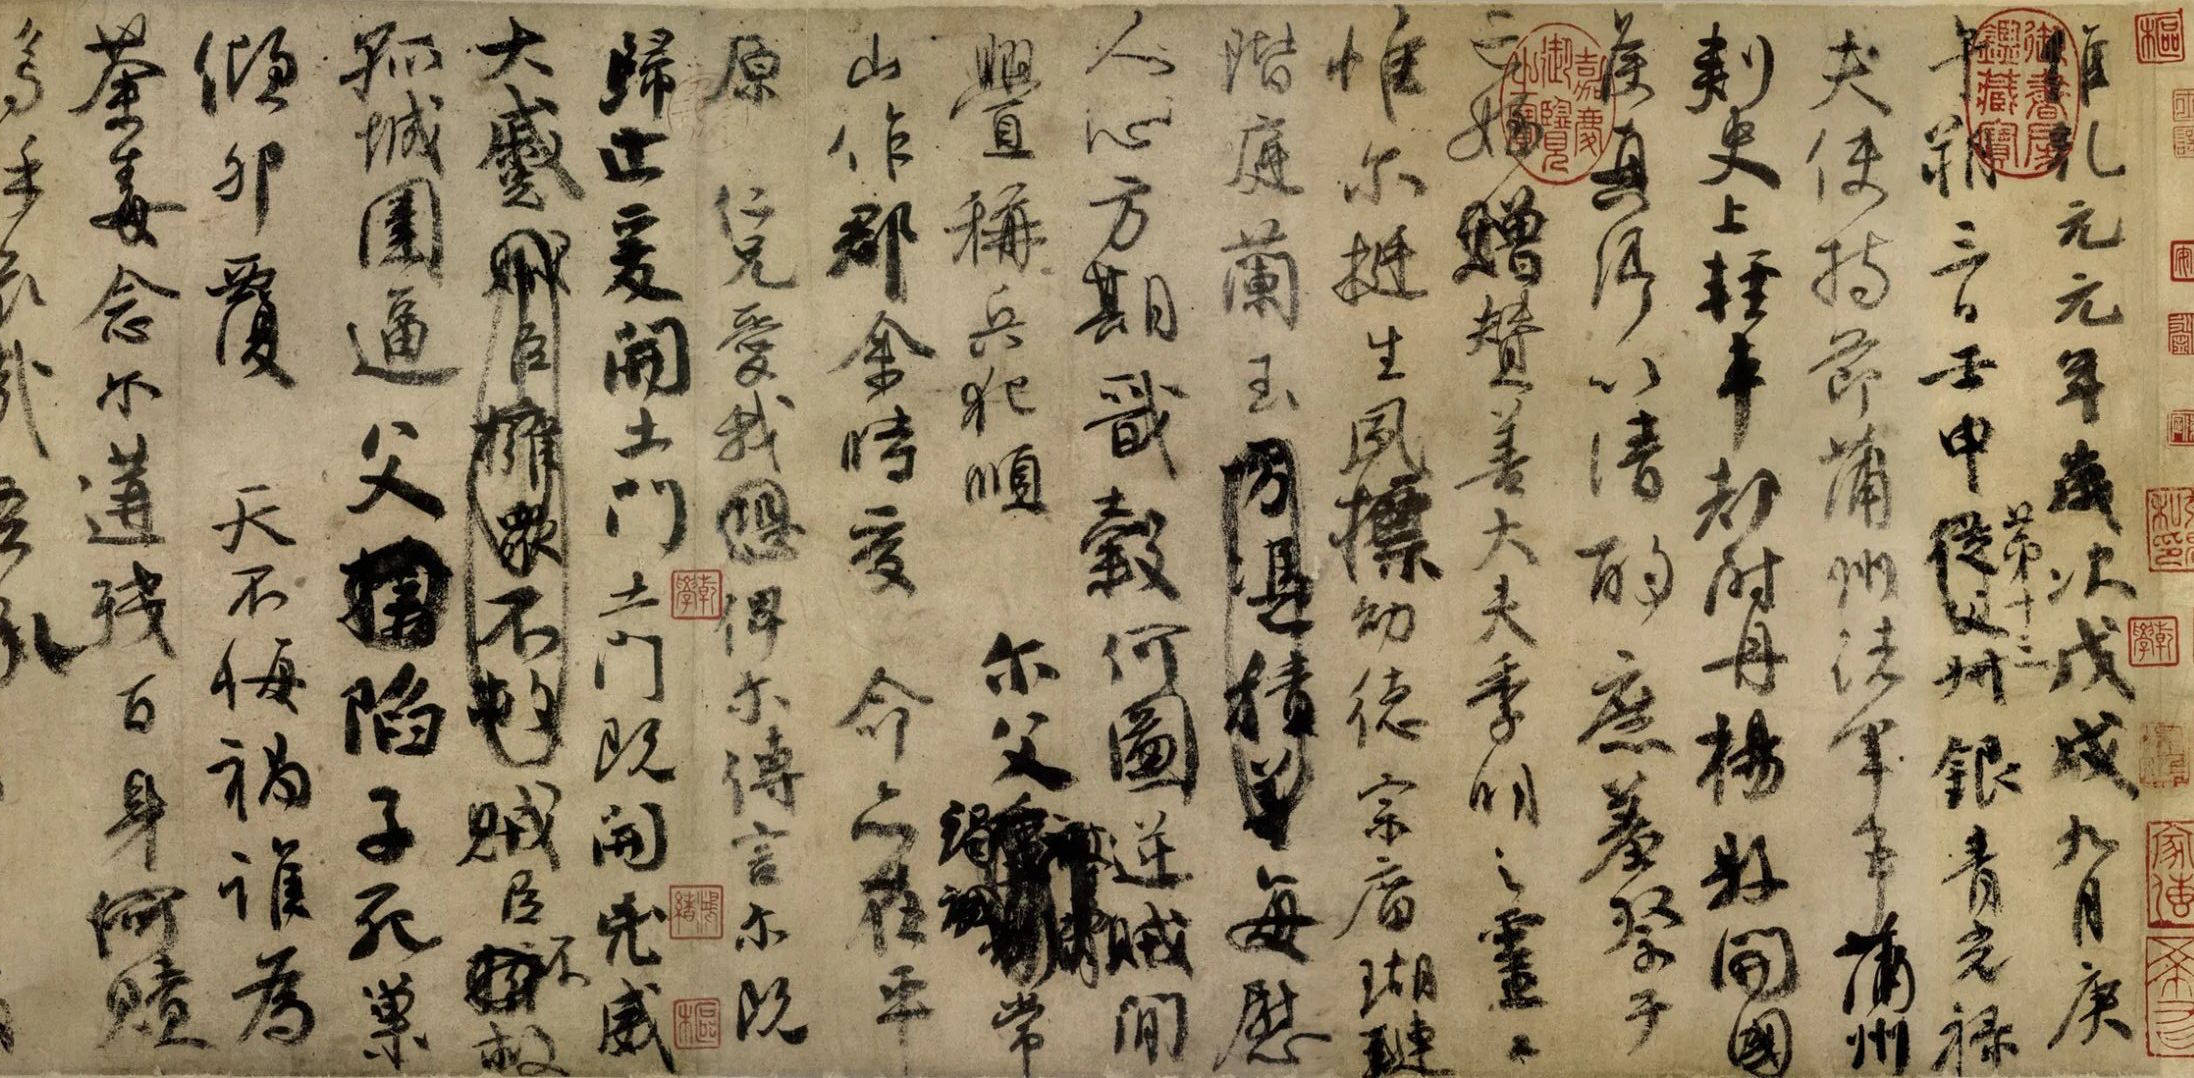 維乾元元年歲次戊戌九月庚
午朔三日壬申第十三從父叔銀青光祿
夫使持節蒲州諸軍事蒲州
刺史上輕車都尉丹楊縣開國
侯真卿以清酌庶羞祭于
亡姪贈贊善大夫季明之靈
惟爾挺生夙標幼德宗廟瑚璉
階庭蘭玉方憑積善每慰
人心方期戩穀何圖逆賊間
釁稱兵犯順爾父竭誠常
山作郡余時受命亦在平
原仁兄愛我恐俾爾傳言爾既
歸止爰開土門土門既開兇威
大蹙賊臣擁眾不救賊臣不救
孤城圍逼父擒陷子死巢
傾卵覆天不悔禍誰為
荼毒念爾遘殘百身何贖
嗚乎哀哉吾承